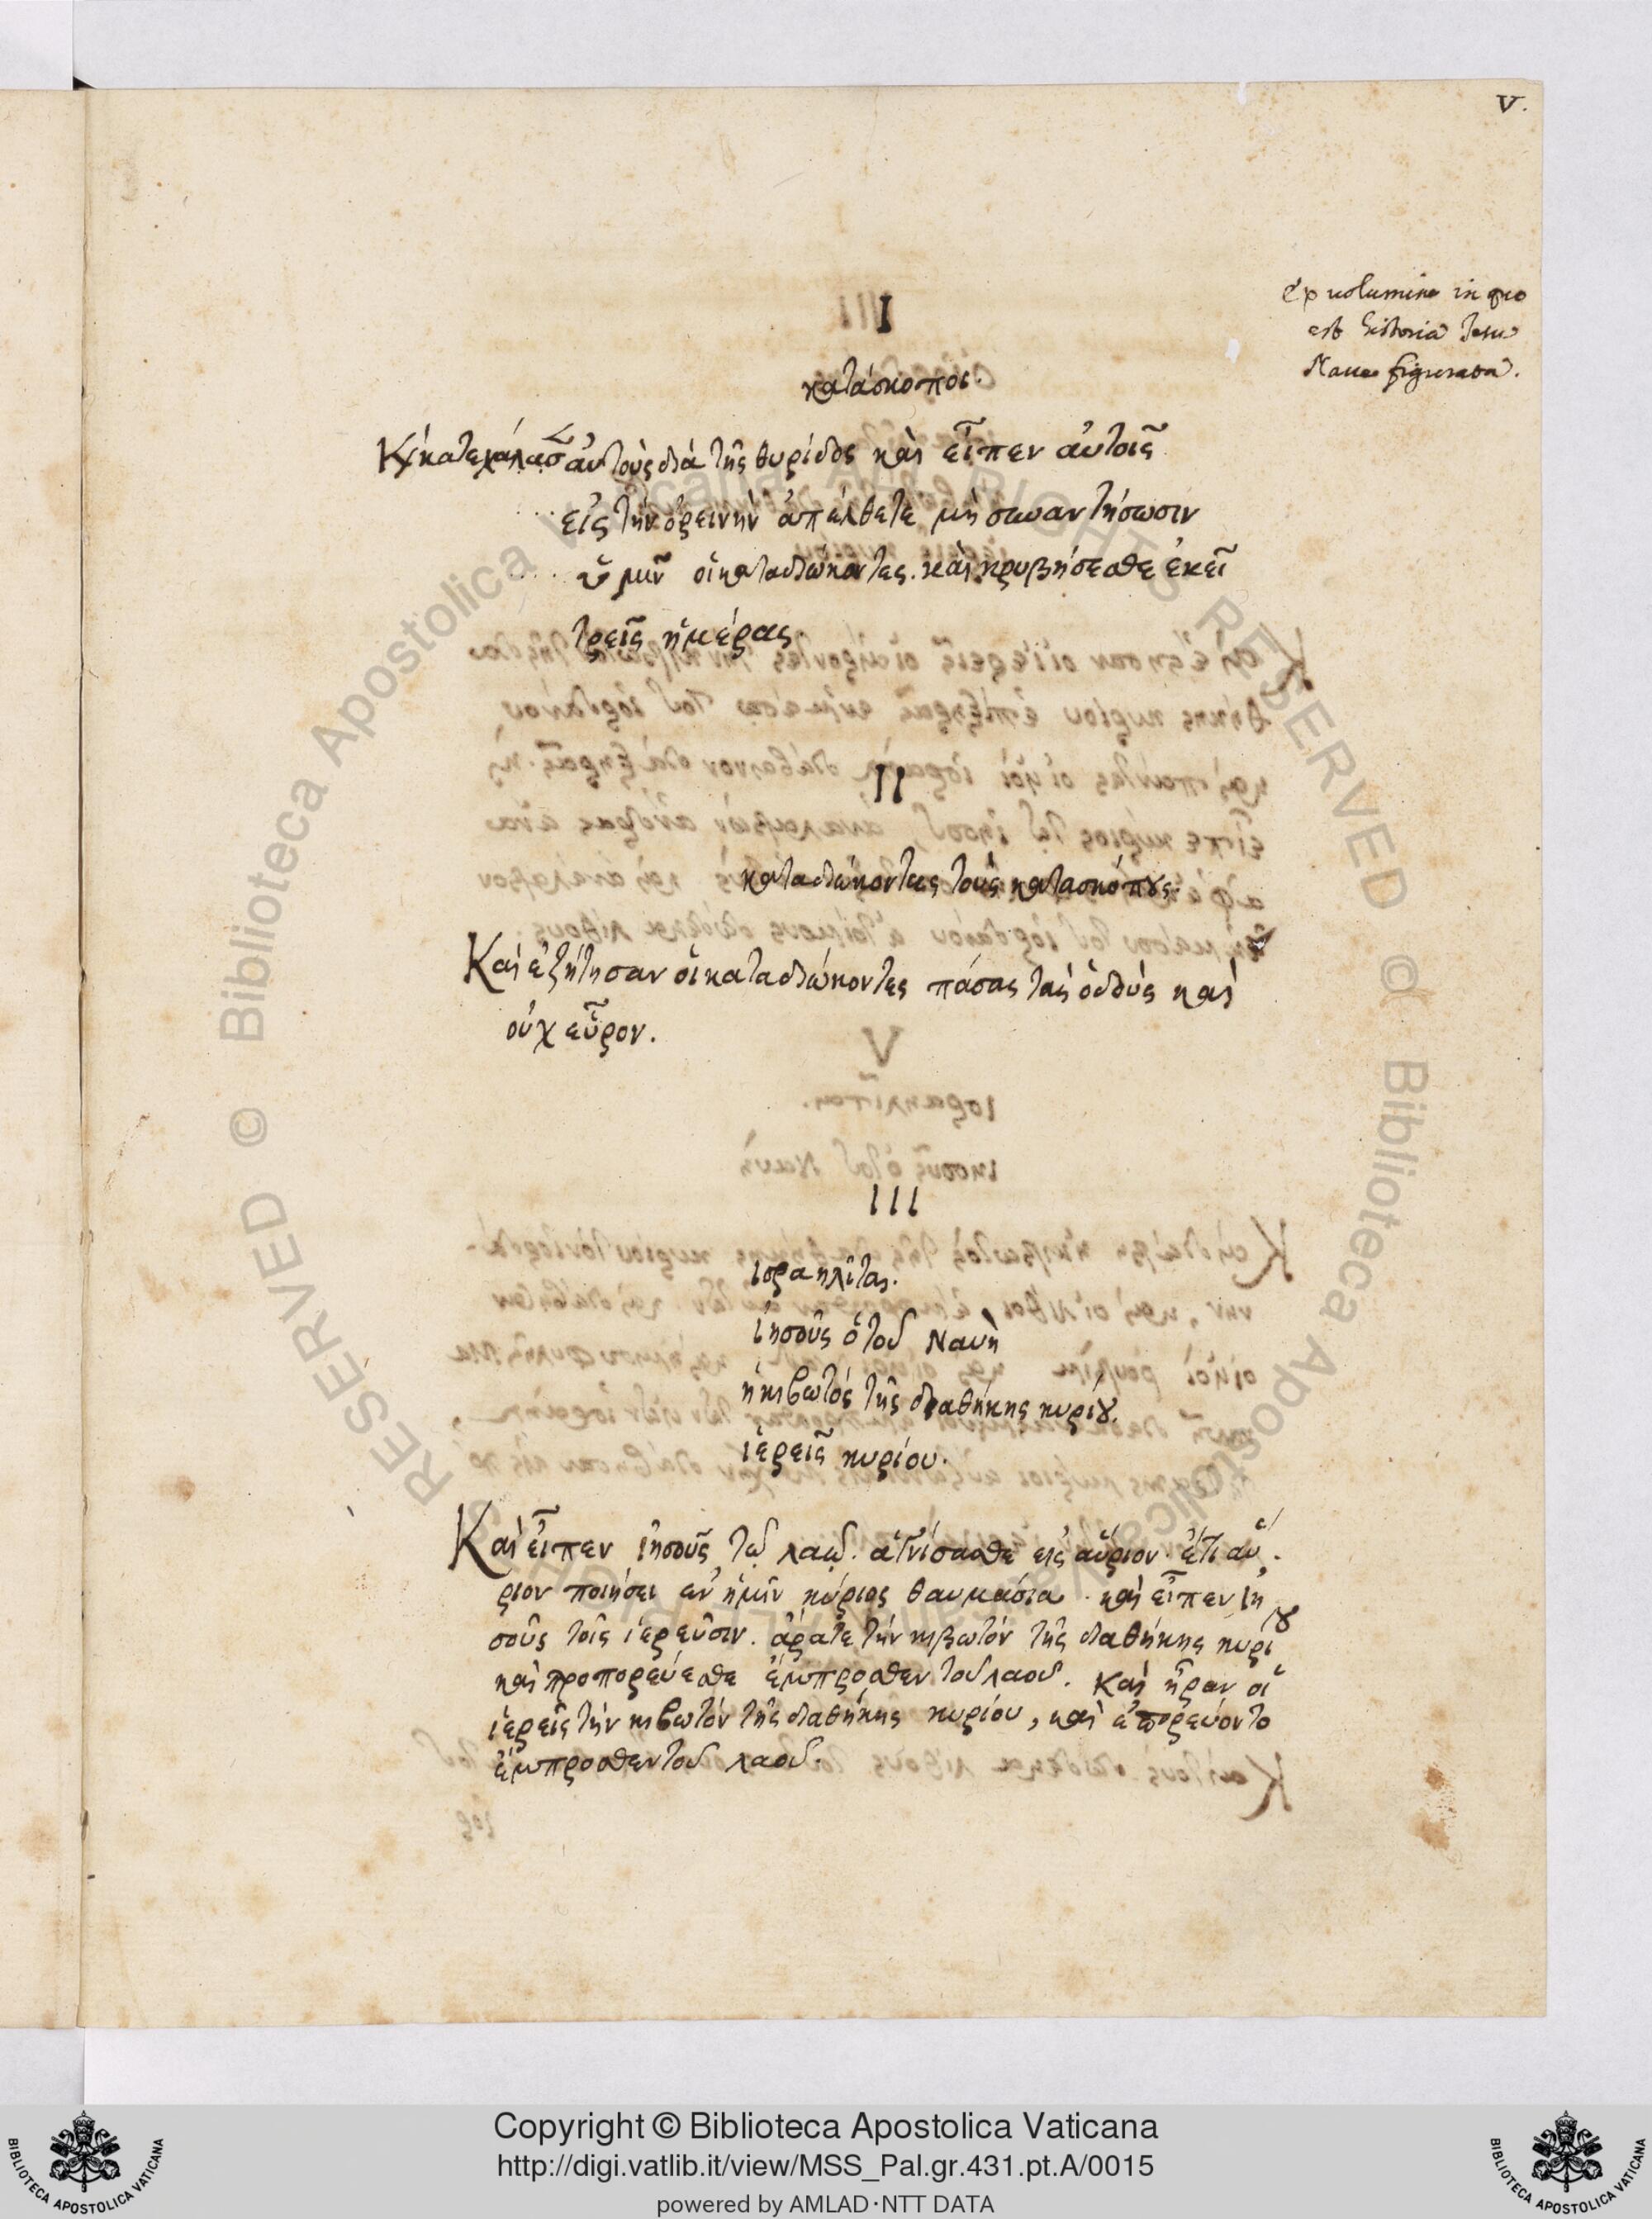 V.
Ex volumine in quo
est historia Iesu
Naue figurata.
I
κατάσκοποι.
Κὶ κατεχάλασεν αὐτοὺς διὰ τῆς θυρίδος καὶ εἶπεν αὐτοῖς
... εἰς τὴν ὀρεινὴν ἀπέλθετε μὴ συναντήσωσιν
.... ὑμῖν οἱ καταδιώκοντες. καὶ κρυβήσεσθε ἐκεῖ
τρεῖς ἡμέρας
II
καταδιώκοντες τοὺς κατασκόπους.
Καὶ ἐζήτησαν οἱ καταδιώκοντες πάσας τὰς ὁδοὺς καὶ
οὐχ εὗρον.
III
ισραηλῖται.
ἰησοῦς ὁ τοῦ Ναυὴ
ἡ κιβωτὸς τῆς διαθήκης κυρίου.
ἱερεῖς κυρίου.
Καὶ εἶπεν ἰησοῦς τῷ λαῷ. ἁγνίσασθε εἰς αὔριον. ἔτι αὔ-
ριον ποιήσει ἐν ἡμῖν κύριος θαυμάσια. καὶ εἶπεν ἰη
σοῦς τοῖς ἱερεῦσιν. ἄρατε τὴν κιβωτὸν τῆς διαθήκης κυρίου
καὶ προπορεύεσθε ἔμπροσθεν τοῦ λαοῦ. Καὶ ἦραν οἱ
ἱερεῖς τὴν κιβωτὸν τῆς διαθήκης κυρίου, καὶ ἐπορεύοντο
ἔμπροσθεν τοῦ λαοῦ.
Copyright © Biblioteca Apostolica Vaticana
http://digi.vatlib.it/view/MSS_Pal.gr.431.pt.A/0015
powered by AMLAD·NTT DATA